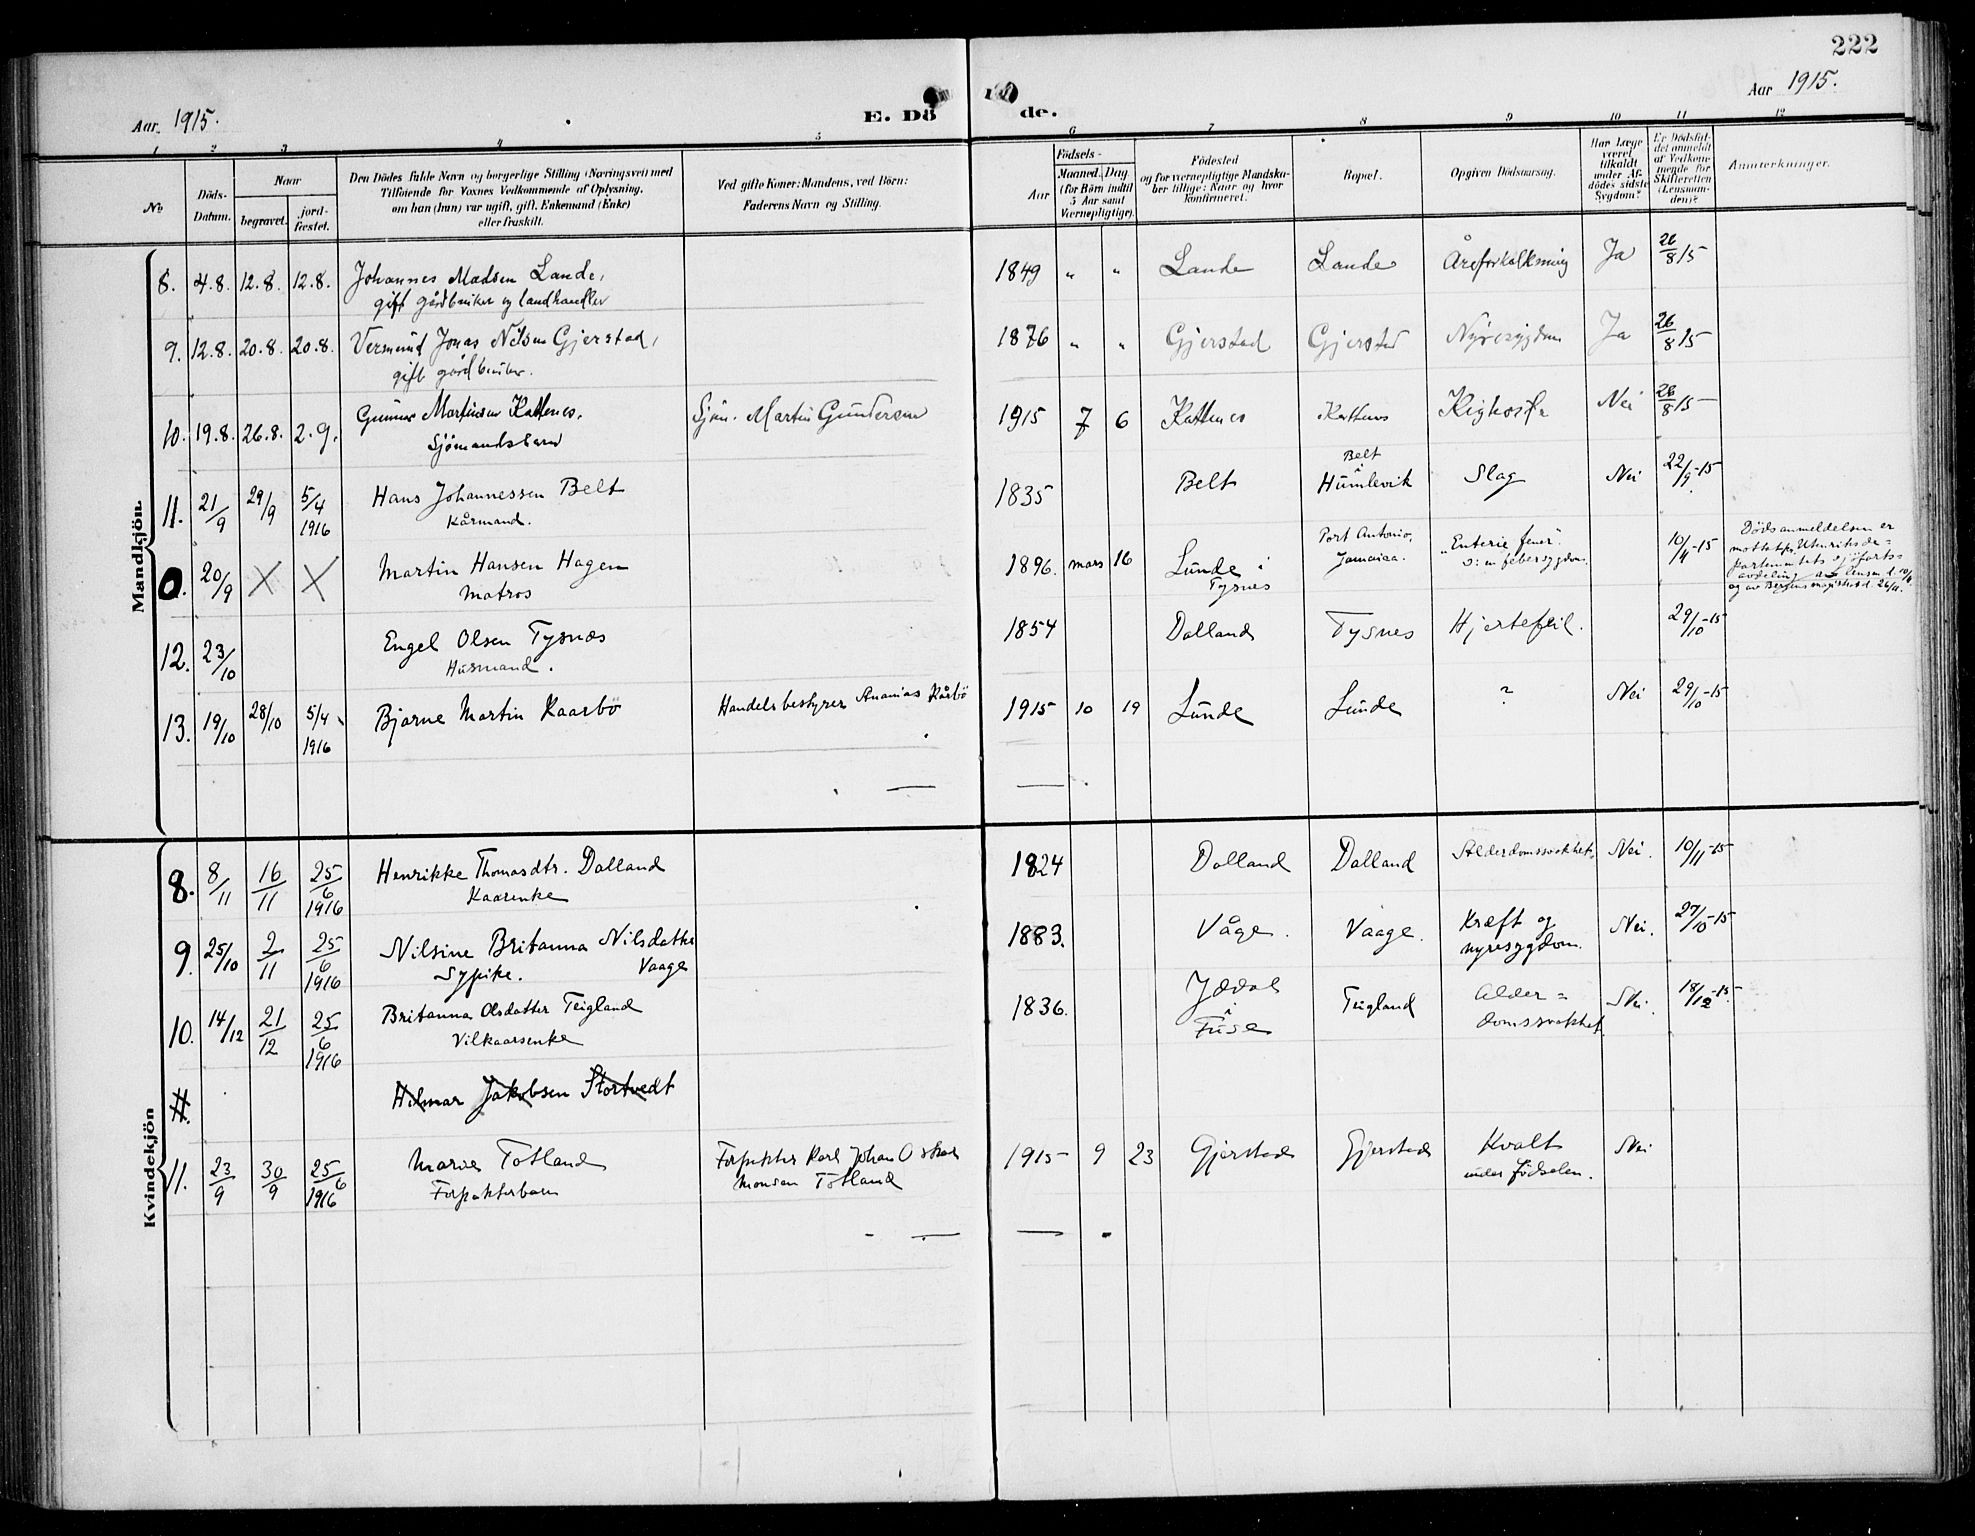 222
Aar 1915.
E. Dö de.
Aar 1915.
1 2 3 4 5 6 7 8 9 10 11 12
No
Döds-Datum.
Naar
begravet.
jord-fæstet.
Den Dödes fulde Navn og borgerlige Stilling (Næringsvei) med
Tilföiende for Voxnes Vedkommende af Oplysning,
om han (hun) var ugift, gift, Enkemand (Enke)
eller fraskilt.
Ved gifte Koner: Mandens, ved Börn:
Faderens Navn og Stilling.
Födsels-
Aar
Maaned. Dag
(for Börn indtil
5 Aar samt
Værnepligtige).
Födested
og for værnepligtige Mandska-
ber tillige: Naar og hvor
konfirmeret.
Bopæl.
Opgiven Dödsaarsag.
Har Læge
været
tilkaldt
under Af-
dödes sidste
Sygdom?
Er Dödsfal-
det anmeldt
af Vedkom-
mende for
Skifteretten
(Lensman-
den)?
Anmerkninger.
Mandkjön.
8. 4.8. 12.8. 12.8. Johannes Madsen Lande, 1849 " " Lande Lande Åreforkalkning Ja 26/8 15
gift gårdbruker og landhandler
9. 12.8. 20.8. 20.8. Vermund Jonas Nilsen Gjerstad, 1876 " " Gjerstad Gjerstad Nyresygdom Ja 26/8 15
gift gårdbruker.
10. 19.8. 26.8. 2.9. Gunnar Martinsen Kattenes, Sjöm. Martin Gundersen 1915 7 6 Kattnes Kattnes Kighoste Nei 26/8 15
Sjömandsbarn
11. 21/9 29/9 5/4 1916 Hans Johannessen Belt 1835 Belt Belt i Humlevik Slag Nei 22/9-15
Kårmand.
0. 20/9 X X Martin Hansen Hagen 1896. mars 16 Lunde i Tysnes Port Antonio, Jamaica. "Enteric fever" ɔ: en febersygdom. 10/4-15
Matros
Dödsanmeldelsen er
motat fra Utenriksde=
partementets sjöfarts=
avdeling
12. 23/10 Engel Olsen Tysnes 1854 Dalland Tysnes Hjertefeil. 29/10-15
Husmand.
13. 19/10 28/10 5/4 1916 Bjarne Martin Kaarbö Handelsbestyrer Ananias Kårbö 1915 10 19 Lunde Lunde ? Nei 29/10-15
Kvindekjön
8. 8/11 16/11 25/6 1916 Henrikke Thomasdtr. Dalland 1824 Dalland Dalland Alderdomssvakhet. Nei. 10/11-15
Kaarenke
9. 25/10 2/11 25/6 1916 Nilsine Britanna Nilsdatter 1883. Våge. Vaage. Kræft og nyresygdom. Nei. 27/10-15
Sypike. Vaage
10. 14/12 21/12 25/6 1916 Britanna Olsdatter Teigland 1836. i Fuse Teigland Alder=domssvakhet Nei. 18/12-15.
Vilkaarsenke
11. Hilmar Jakobsen Stortvedt
11. 23/9 30/9 25/6 1916 Marie Totland Forpakter Karl Johan Oskar 1915 9 23 Gjerstad Gjerstad Kvalt Nei
Forpakterbarn Monsen Totland under födselen.